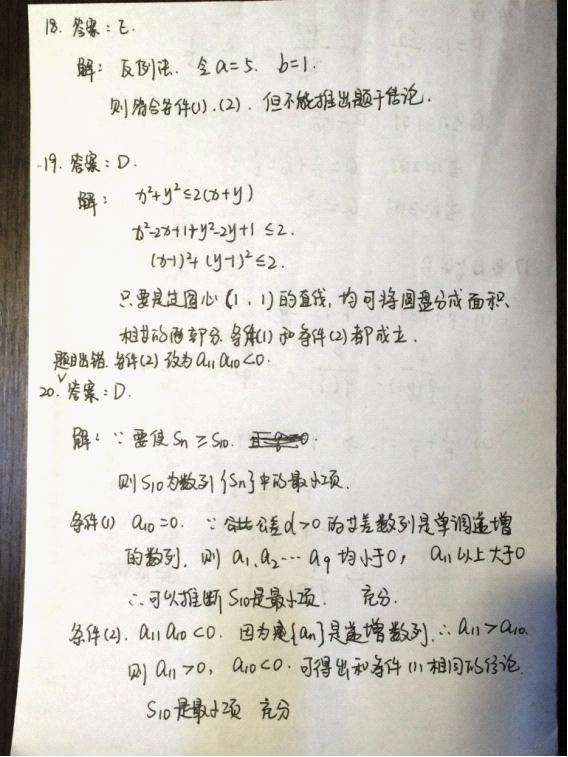 18. 答案：E.
解：反例法. 令 a=5. b=1.
则符合条件(1).(2). 但不能推出题干结论.
19. 答案：D.
解： x²+y²≤2(x+y)
x²-2x+1+y²-2y+1≤2.
(x-1)²+(y-1)²≤2.
只要是过圆心(1,1)的直线,均可将圆盘分成面积
相等的两部分.条件(1)和条件(2)都成立.
题目出错.条件(2)改为a₁₁a₁₀<0.
20. 答案：D.
解：∵要使Sn≥S₁₀.
则S₁₀为数列{Sn}中的最小项.
条件(1) a₁₀=0. ∵公差d>0的等差数列是单调递增
的数列. 则a₁、a₂…a₉均小于0, a₁₁以上大于0
∴可以推断S₁₀是最小项. 充分.
条件(2). a₁₁a₁₀<0. 因为{an}是递增数列.∴a₁₁>a₁₀.
则a₁₁>0, a₁₀<0.可得出和条件(1)相同的结论.
S₁₀是最小项 充分